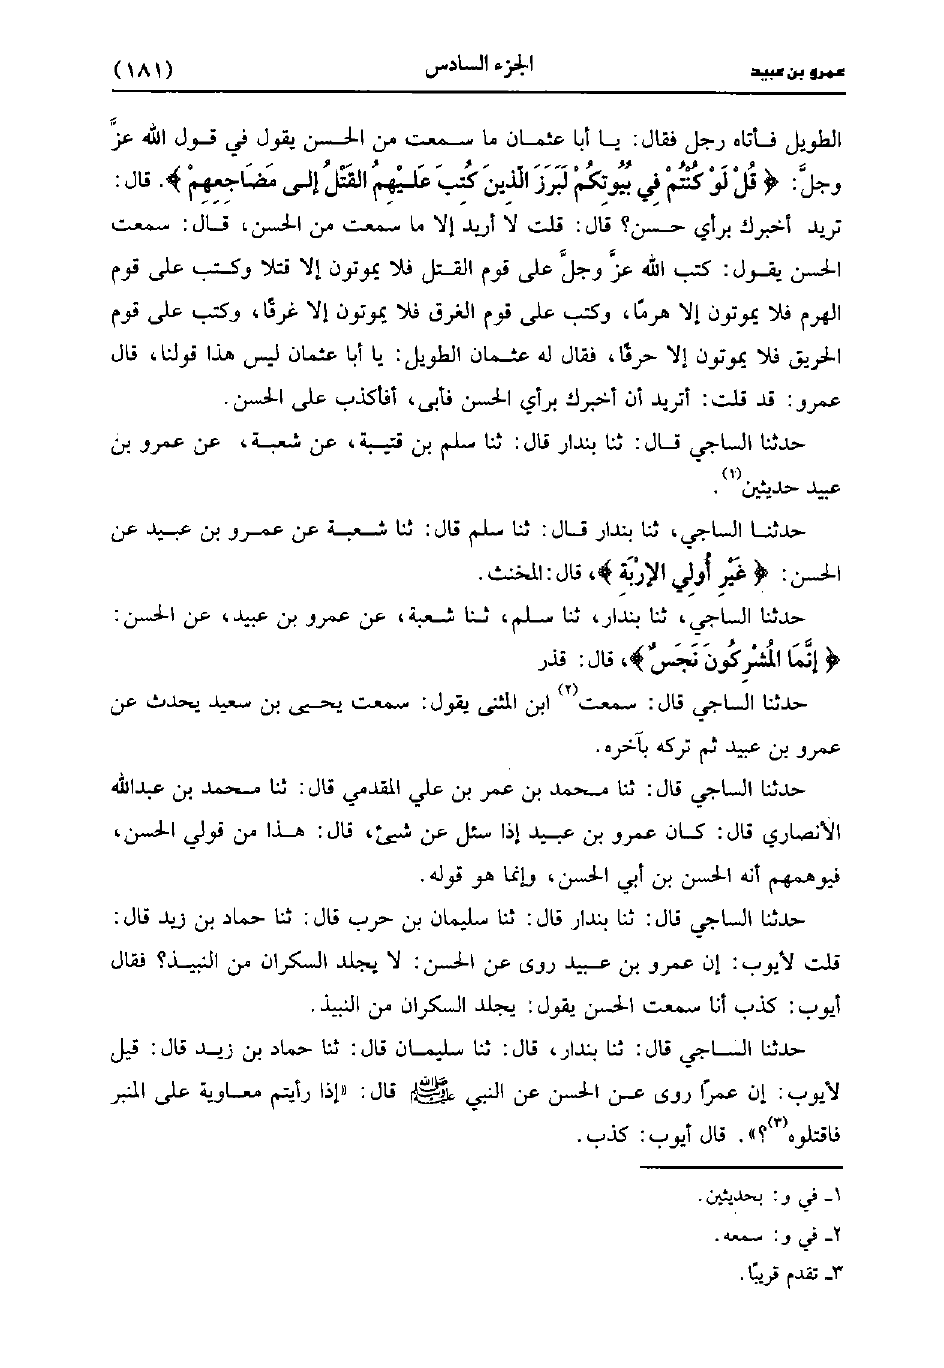 عمرو بن عبيد الجزء السادس (١٨١)
الطويل فأتاه رجل فقال: يا أبا عثمان ما سمعت من الحسن يقول في قول الله عزَّ
وجلَّ: ﴿ قُلْ لَوْ كُنْتُمْ فِي بُيُوتِكُمْ لَبَرَزَ الَّذِينَ كُتِبَ عَلَيْهِمُ القَتْلُ إِلى مَضَاجِعِهِمْ ﴾. قال:
تريد أخبرك برأي حسن؟ قال: قلت لا أريد إلا ما سمعت من الحسن، قال: سمعت
الحسن يقول: كتب الله عزَّ وجلَّ على قوم القتل فلا يموتون إلا قتلا وكتب على قوم
الهرم فلا يموتون إلا هرمًا، وكتب على قوم الغرق فلا يموتون إلا غرقًا، وكتب على قوم
الحريق فلا يموتون إلا حرقًا، فقال له عثمان الطويل: يا أبا عثمان ليس هذا قولنا، قال
عمرو: قد قلت: أتريد أن أخبرك برأي الحسن فأبى، أفأكذب على الحسن.
حدثنا الساجي قال: ثنا بندار قال: ثنا سلم بن قتيبة، عن شعبة، عن عمرو بن
عبيد حديثين(١).
حدثنا الساجي، ثنا بندار قال: ثنا سلم قال: ثنا شعبة عن عمرو بن عبيد عن
الحسن: ﴿ غَيْرِ أُولِي الإِرْبَةِ ﴾، قال: المخنث.
حدثنا الساجي، ثنا بندار، ثنا سلم، ثنا شعبة، عن عمرو بن عبيد، عن الحسن:
﴿ إِنَّمَا المُشْرِكُونَ نَجَسٌ ﴾، قال: قذر
حدثنا الساجي قال: سمعت(٢) ابن المثنى يقول: سمعت يحيى بن سعيد يحدث عن
عمرو بن عبيد ثم تركه بآخره.
حدثنا الساجي قال: ثنا محمد بن عمر بن علي المقدمي قال: ثنا محمد بن عبدالله
الأنصاري قال: كان عمرو بن عبيد إذا سئل عن شيئ، قال: هذا من قولي الحسن،
فيوهمهم أنه الحسن بن أبي الحسن، وإنما هو قوله.
حدثنا الساجي قال: ثنا بندار قال: ثنا سليمان بن حرب قال: ثنا حماد بن زيد قال:
قلت لأيوب: إن عمرو بن عبيد روى عن الحسن: لا يجلد السكران من النبيذ؟ فقال
أيوب: كذب أنا سمعت الحسن يقول: يجلد السكران من النبيذ.
حدثنا الساجي قال: ثنا بندار، قال: ثنا سليمان قال: ثنا حماد بن زيد قال: قيل
لأيوب: إن عمرًا روى عن الحسن عن النبي ﷺ قال: «إذا رأيتم معاوية على المنبر
فاقتلوه(٣)؟». قال أيوب: كذب.
١ـ في و: بحديثين.
٢ـ في و: سمعه.
٣ـ تقدم قريبًا.